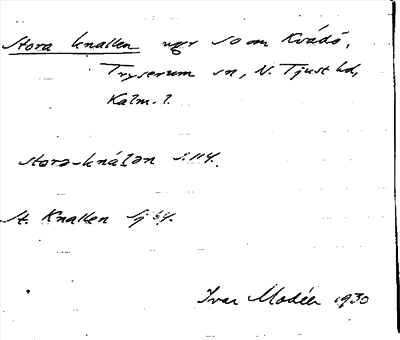 Stora knallen ugr SO om Kvädö,
Tryserum sn, N. Tjust hd,
Kalm. l.
stora-knálən s. 114.
St. Knallen Sj 84.
Ivar Modéer 1930